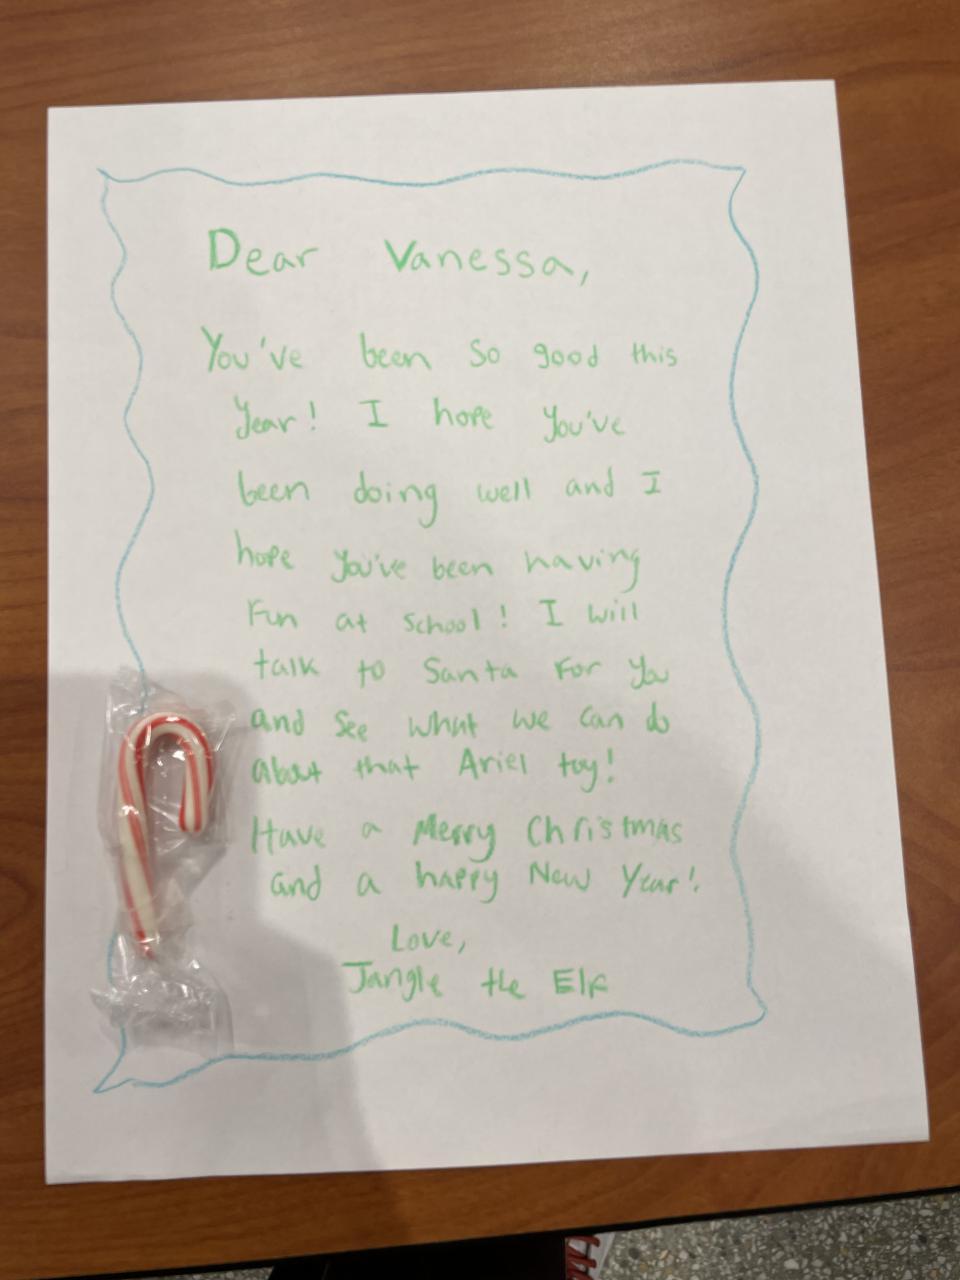 Dear Vanessa,
You've been so good this
year! I hope you've
been doing well and I
hope you've been having
fun at school! I will
talk to Santa for you
and see what we can do
about that Ariel toy!
Have a Merry Christmas
and a happy New Year!
Love,
Jangle the Elf